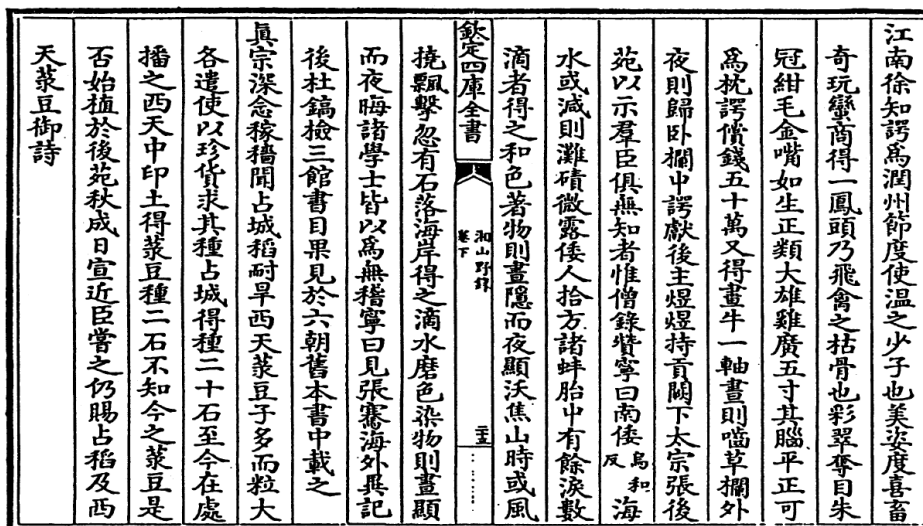 江南徐知諤為潤州節度使溫之少子也美姿度喜畜
奇玩蠻商得一鳳頭乃飛禽之枯骨也彩翠奪目朱
冠紺毛金嘴如生正類大雄雞廣五寸其腦平正可
為枕諤償錢五十萬又得畫牛一軸晝則嚙草欄外
夜則歸卧欄中諤獻後主煜煜持貢闕下太宗張後
苑以示羣臣俱無知者惟僧錄贊寧曰南倭烏和反海
水或減則灘磧微露倭人拾方諸蚌胎中有餘淚數
滴者得之和色著物則晝隱而夜顯沃焦山時或風
欽定四庫全書
湘山野錄
卷下
二十五
撓飄擊忽有石落海岸得之滴水磨色染物則晝顯
而夜晦諸學士皆以為無稽寧曰見張騫海外異記
後杜鎬檢三館書目果見於六朝舊本書中載之
真宗深念稼穡聞占城稻耐旱西天菉豆子多而粒大
各遣使以珍貨求其種占城得種二十石至今在處
播之西天中印土得菉豆種二石不知今之菉豆是
否始植於後苑秋成日宣近臣嘗之仍賜占稻及西
天菉豆御詩